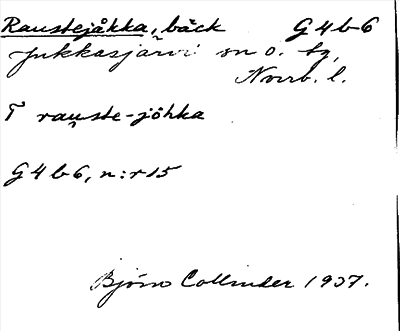 Raustejåkka, bäck G4b-6
Jukkasjärvi sn o. tg,
Norrb. l.
T rau̯ste-jåhka
G4b-6, n:r 15
Björn Collinder 1937.